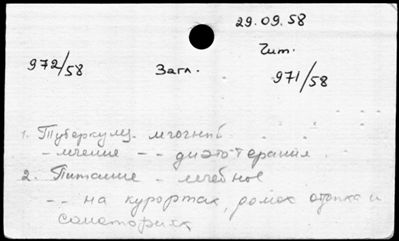 29.09.58
Чит.
972/58 Загл. 971/58
1. Туберкулез легочный
- лечение -- диэто-терапия.
2. Питание - лечебное
-- на курортах, домах отдыха и
санаториях